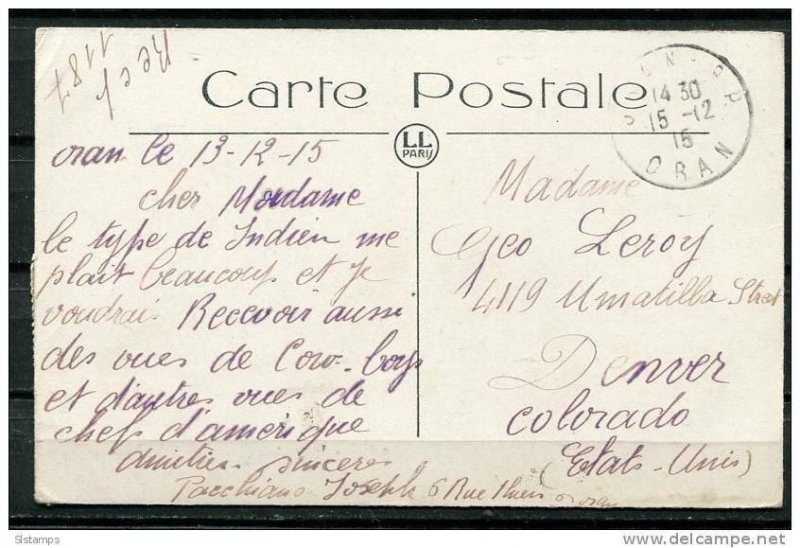 Recd
1187
Carte Postale
LL
PARIS
14 30
15 -12
15
ORAN
oran le 13-12-15
cher Mordame
le type de Indien me
plait beaucoup et je
voudrais Recevoir aussi
des vues de Cow-boys
et d'autres vues de
chefs d'amerique
Amities sinceres
Pacchiano Joseph 6 Rue oran
Madame
Geo Leroy
4119 Umatilla Street
Denver
colorado
(Etats-Unis)
SIstamps
delcampe.net